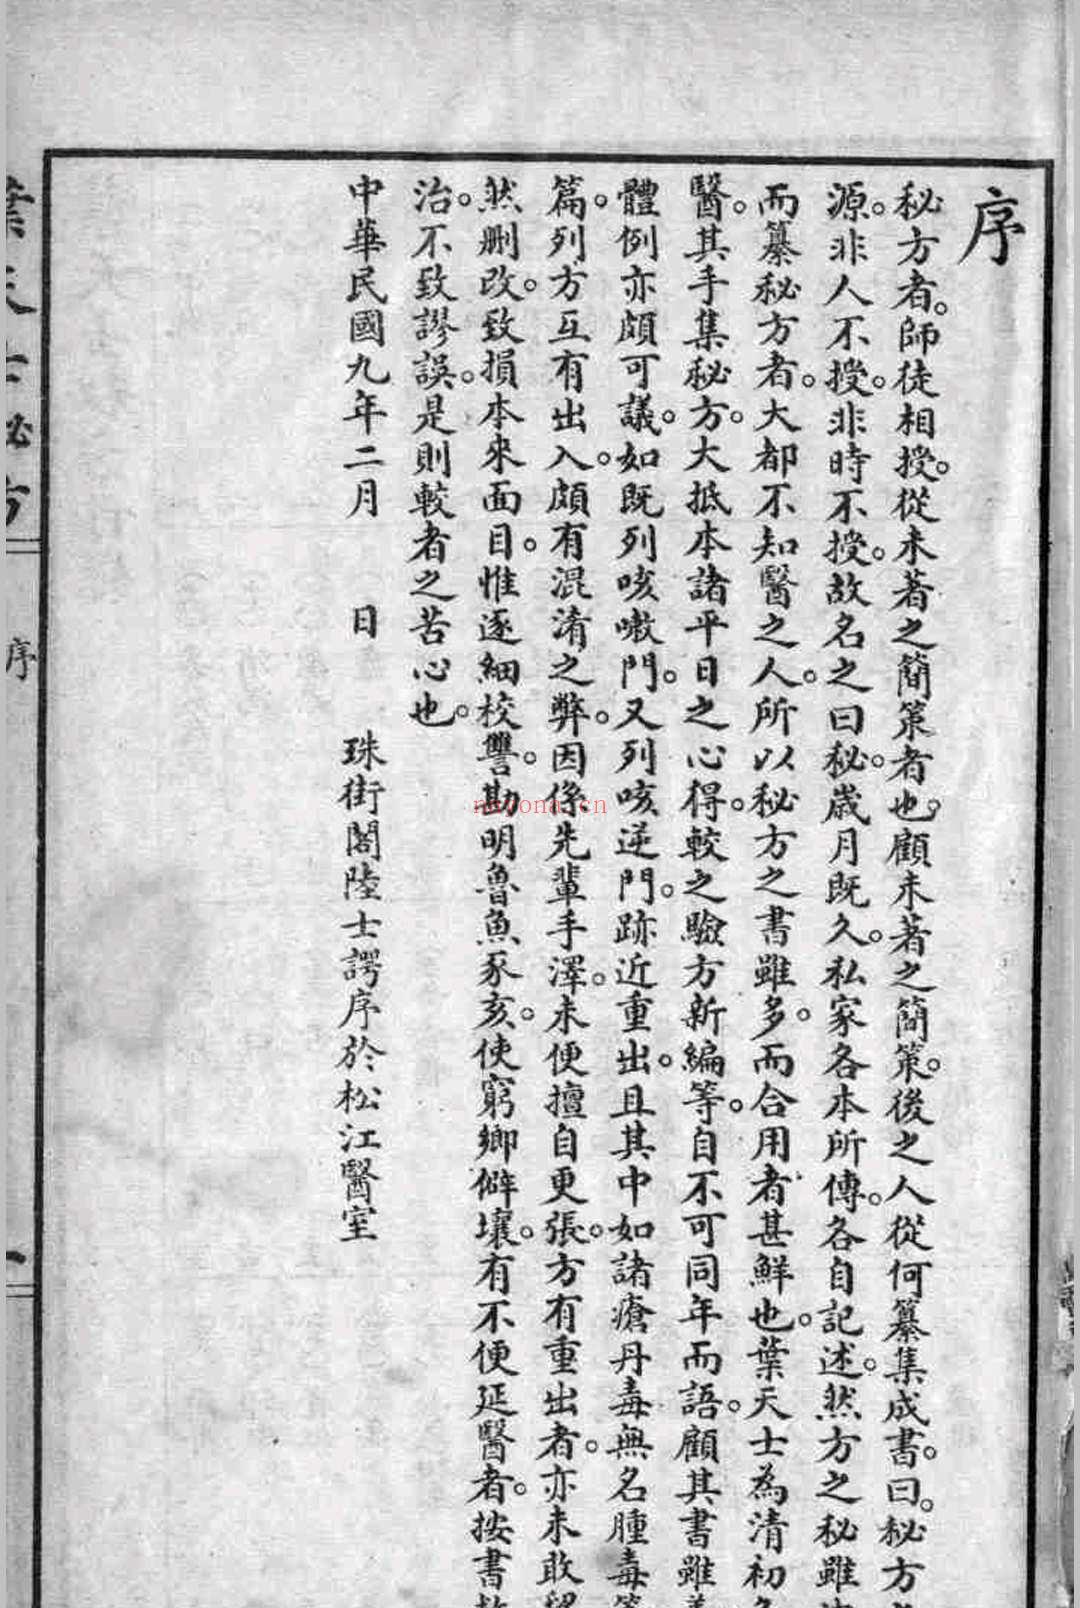 序
秘方者。師徒相授。從未著之簡策者也。顧未著之簡策。後之人從何纂集成書。曰。秘方
源。非人不授。非時不授。故名之曰秘。歲月既久。私家各本所傳。各自記述。然方之秘雖
而纂秘方者。大都不知醫之人。所以秘方之書雖多。而合用者甚鮮也。葉天士為清初
醫。其手集秘方。大抵本諸平日之心得。較之驗方新編等。自不可同年而語。顧其書雖
體例亦頗可議。如既列咳嗽門。又列咳逆門。跡近重出。且其中如諸瘡丹毒無名腫毒
篇。列方互有出入。頗有混淆之弊。因係先輩手澤。未便擅自更張。方有重出者。亦未敢
然刪改。致損本來面目。惟逐細校讐。勘明魯魚豕亥。使窮鄉僻壤。有不便延醫者。按書
治。不致謬誤。是則較者之苦心也。
中華民國九年二月 日 珠街閣陸士諤序於松江醫室
葉天士秘方
序
一
nayona.cn